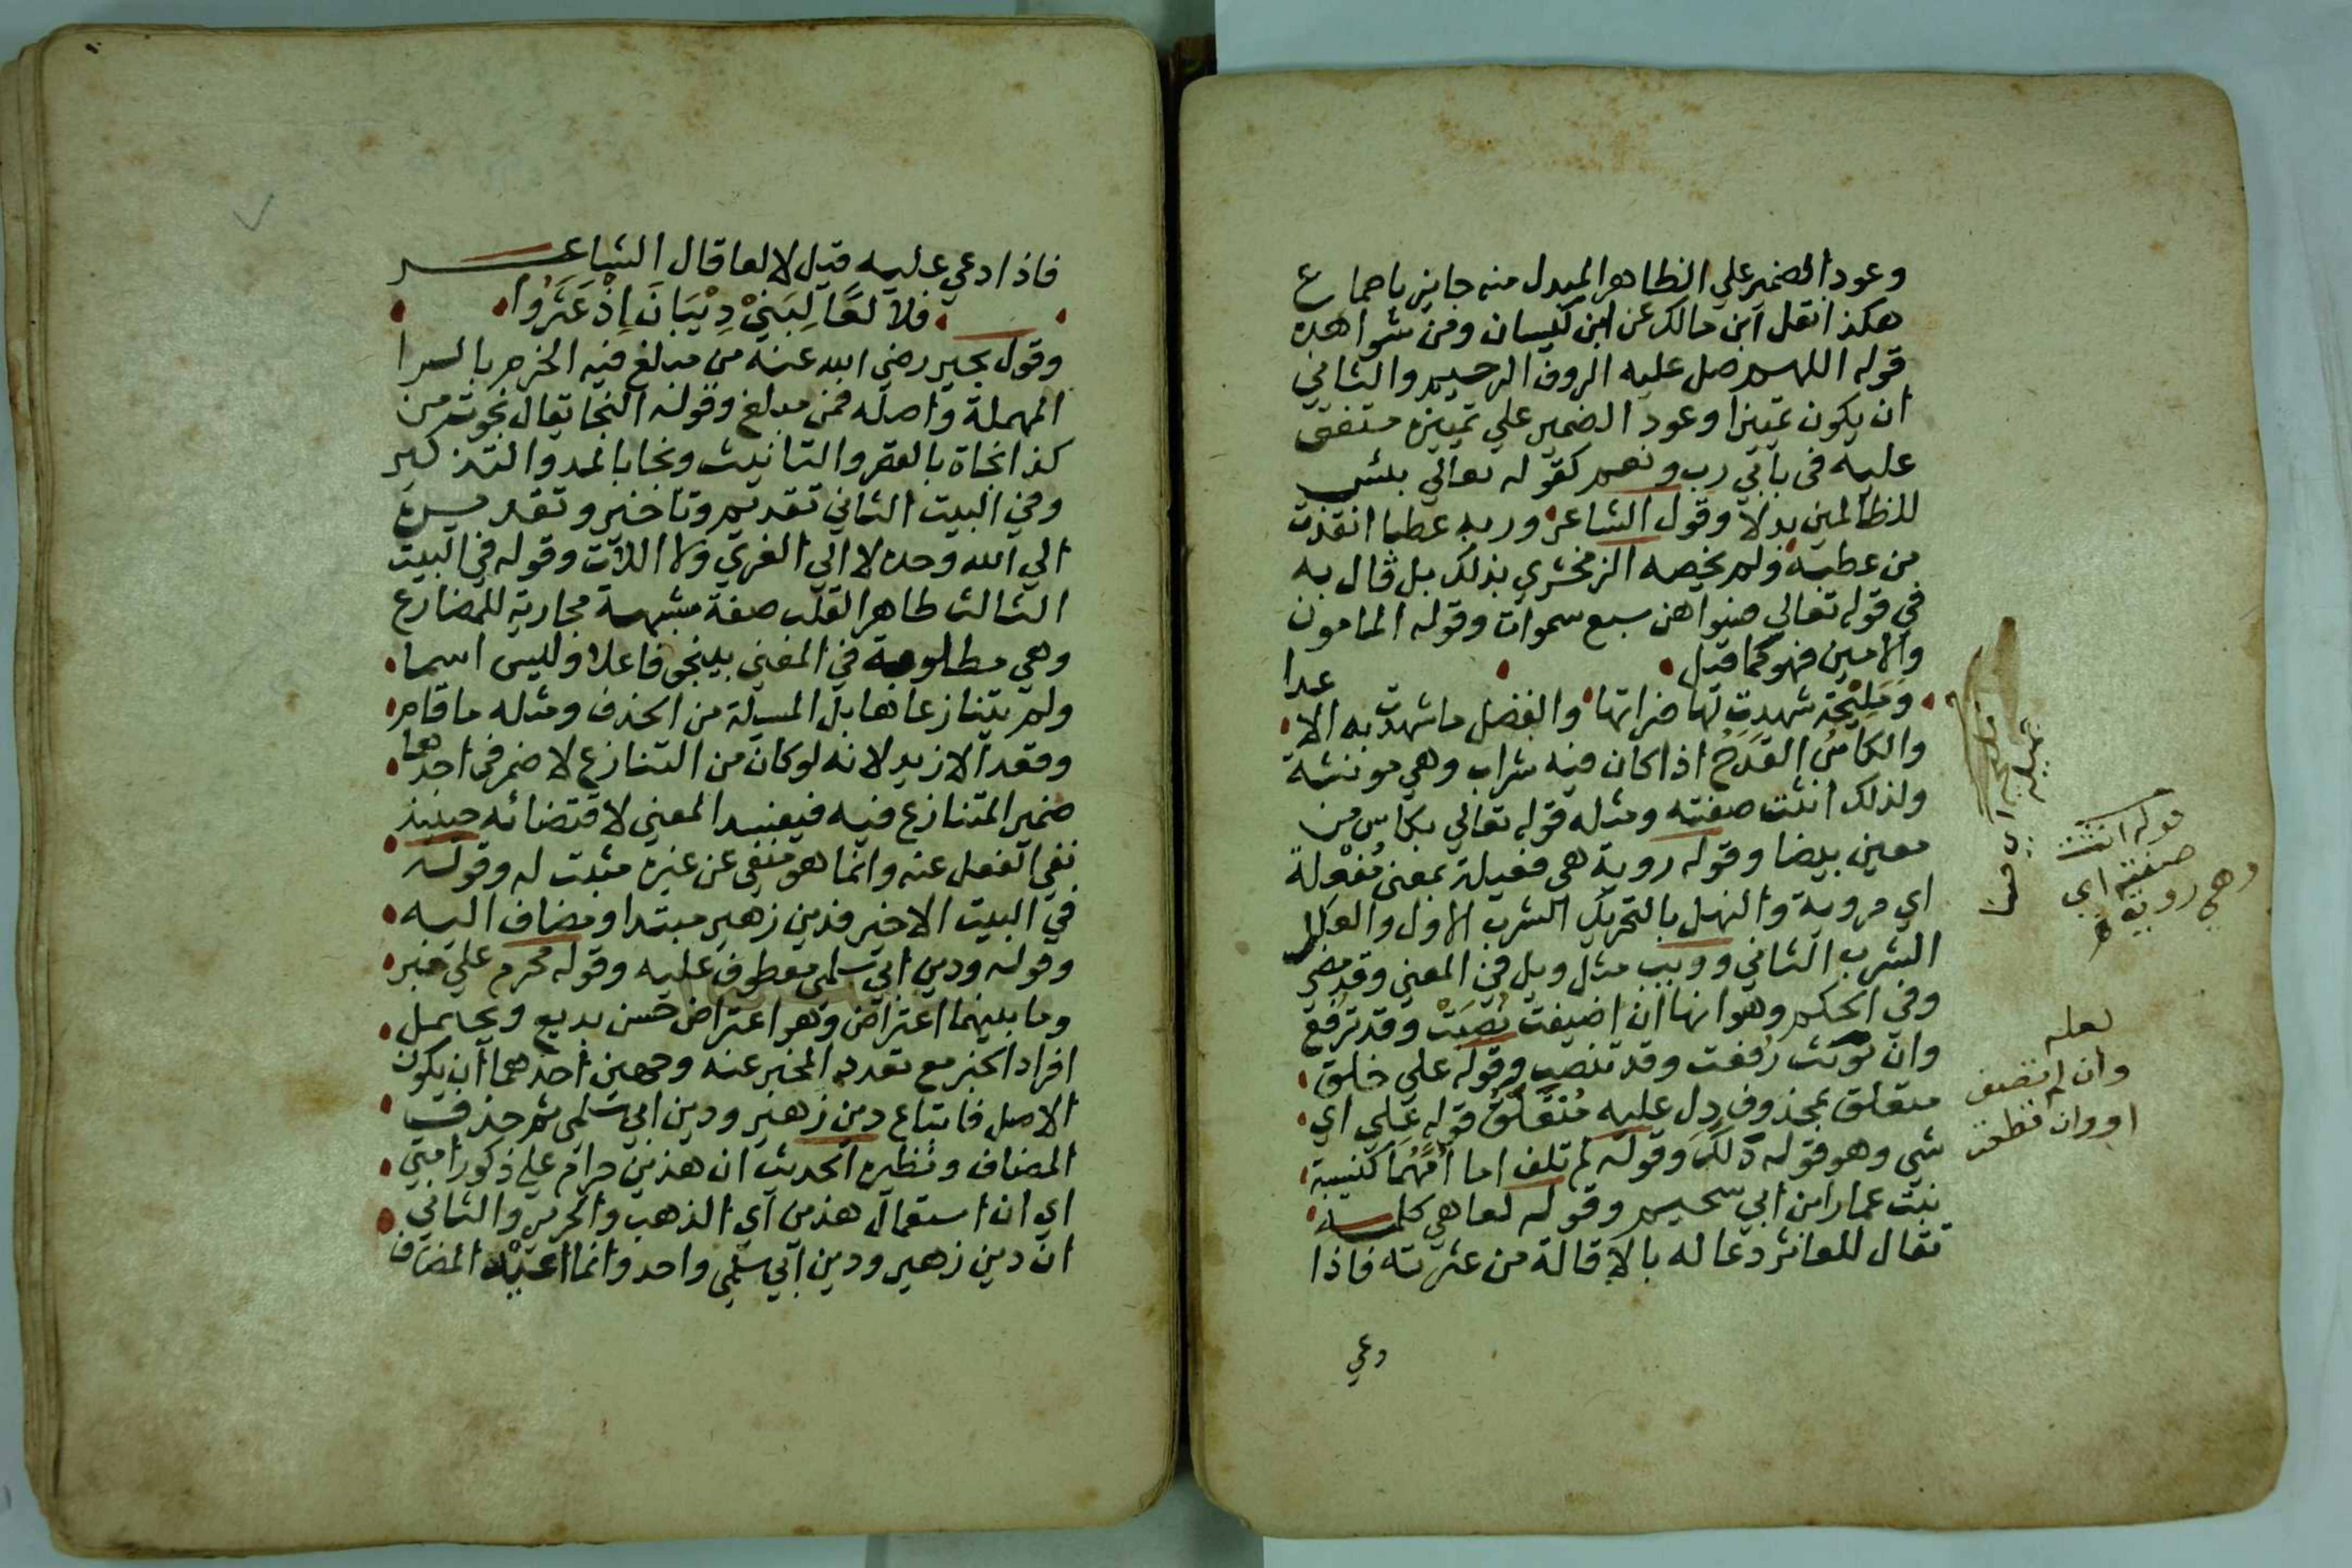 وعود الضمير علي الظاهر المبدل منه جايز باجماع
هكذا نقل ابن مالك عن ابن كيسان ومن شواهده
قوله اللهم صل عليه الروف الرحيم والثاني
ان يكون تمييزا وعود الضمير علي تمييزه متفق
عليه في بابي رب ونعم كقوله تعالي بئس
للظالمين بدلا وقول الشاعر وربه عطبا انقذت
من عطبه ولم يخصه الزمخشري بذلك بل قال به
في قوله تعالي فسواهن سبع سموات وقوله المامون
والامين فهو كما قيل
ومليحة شهدت لها ضراتها والفضل ما شهدت به الاعدا
والكاس القدح اذا كان فيه شراب وهي مونثة
ولذلك انثت صفته ومثله قوله تعالي بكاس من
معين بيضا وقوله روية هي فعيلة بمعني مُفْعَلة
اي مروية والنهل بالتحريك الشرب الاول والعلل
الشرب الثاني وويب مثل ويل في المعني وقد مضي
وفي الحكم وهو انها ان اضيفت نُصِبَتْ وقد ترفع
وان نونت رفعت وقد تنصب وقوله علي خلق
متعلق بمحذوف دل عليه متعلق قوله عَلَي اي
شي وهو قوله دَلَّكَ وقوله لم تلف اما امهما كنيسة
بنت عمار من ابي سحيم وقوله لعا هي كلمة
تقال للعاثر دعا له بالاقالة من عثرته فاذا
دعي
قوله انثت
صفته اي
وهي روية
لعله
وان لم تضف
او وان قطعت
فاذا دعي عليه قيل لا لعا قال الشاعر
فلا لعًا لِبَنيْ ذِبْيَانَ اِذْ عَثَرُوا
وقول بجير رضي الله عنه من مبلغ فيه الخرم بالرا
المهملة واصله فمن مبلغ وقوله النجا يقال نجوت من
كذا نجاة بالقصر والتانيث ونجا بالمد والتذكير
وفي البيت الثاني تقديم وتاخير وتقديره
الي الله وحده لا الي العزي ولا اللات وقوله في البيت
الثالث طاهر القلب صفة مشبهة مجارية للمضارع
وهي مطلوبة في المعني بينجو فاعلا وليس اسما
ولم يتنازعاها بل المسيلة من الحذف ومثله ما قام
وقعد الا زيد لانه لو كان من التنازع لاضمر في احدهما
ضمير المتنازع فيه فيفسد المعني لاقتضائه حينئذ
نفي الفعل عنه وانما هو منفي عن غيره مثبت له وقوله
في البيت الاخير فدين زهير مبتدا ومضاف اليه
وقوله ودين ابي سلمي معطوف عليه وقوله محرم علي خبر
وما بينهما اعتراض وهو اعتراض حسن بديع ويحتمل
افراد الخبر مع تعدد المخبر عنه وجهين احدهما ان يكون
الاصل فاتباع دين زهير ودين ابي سلمي ثم حذف
المضاف ونظيره الحديث ان هذين حرام علي ذكور امتي
اي ان استعمال هذين اي الذهب والحرير والثاني
ان دين زهير ودين ابي سلمي واحد وانما اعيد المضاف